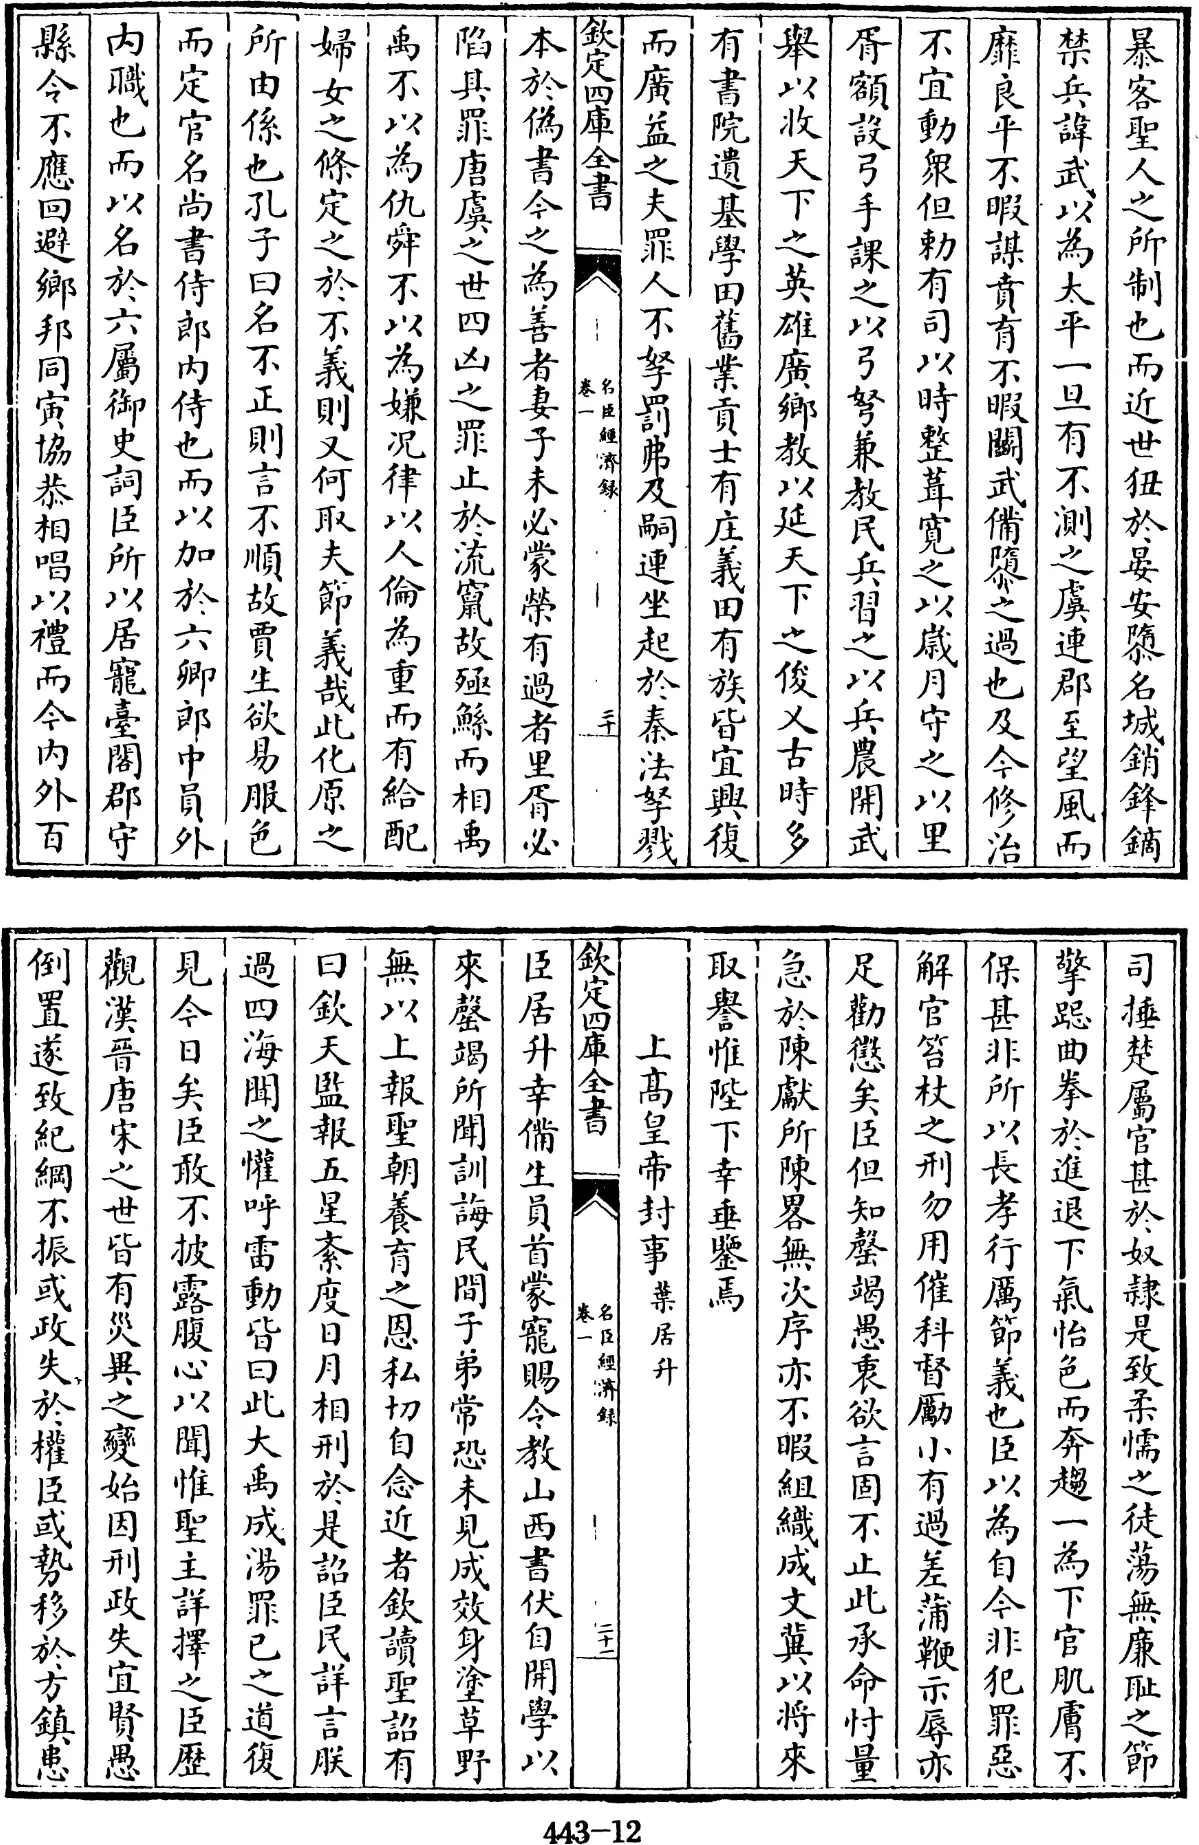 暴客聖人之所制也而近世狃於晏安隳名城銷鋒鏑
禁兵諱武以為太平一旦有不測之虞連郡至望風而
靡良平不暇謀賁育不暇鬭武備隳之過也及今修治
不宜動衆但勅有司以時整葺寛之以嵗月守之以里
胥額設弓手課之以弓弩兼教民兵習之以兵農開武
舉以收天下之英雄廣鄉教以延天下之俊乂古時多
有書院遺基學田舊業貢士有庄義田有族皆宜興復
而廣益之夫罪人不孥罰弗及嗣連坐起於秦法孥戮
欽定四庫全書
名臣經濟録
卷一
二十
本於偽書今之為善者妻子未必蒙榮有過者里胥必
陷其罪唐虞之世四凶之罪止於流竄故殛鯀而相禹
禹不以為仇舜不以為嫌况律以人倫為重而有給配
婦女之條定之於不義則又何取夫節義哉此化原之
所由係也孔子曰名不正則言不順故賈生欲易服色
而定官名尚書侍郎内侍也而以加於六卿郎中員外
内職也而以名於六屬御史詞臣所以居寵臺閣郡守
縣令不應回避鄉邦同寅協恭相唱以禮而今内外百
司捶楚屬官甚於奴隷是致柔懦之徒蕩無廉耻之節
擎跽曲拳於進退下氣怡色而奔趨一為下官肌膚不
保甚非所以長孝行厲節義也臣以為自今非犯罪惡
解官笞杖之刑勿用催科督勵小有過差蒲鞭示辱亦
足勸懲矣臣但知罄竭愚衷欲言固不止此承命忖量
急於陳獻所陳畧無次序亦不暇組織成文冀以将來
取譽惟陛下幸垂鑒焉
上髙皇帝封事 葉居升
欽定四庫全書
名臣經濟録
卷一
二十一
臣居升幸備生員首蒙寵賜令教山西書伏自開學以
來罄竭所聞訓誨民間子弟常恐未見成效身塗草野
無以上報聖朝養育之恩私切自念近者欽讀聖詔有
曰欽天監報五星紊度日月相刑於是詔臣民詳言朕
過四海聞之懽呼雷動皆曰此大禹成湯罪已之道復
見今日矣臣敢不披露腹心以聞惟聖主詳擇之臣歴
觀漢晉唐宋之世皆有災異之變始因刑政失宜賢愚
倒置遂致紀綱不振或政失於權臣或勢移於方鎮患
443-12